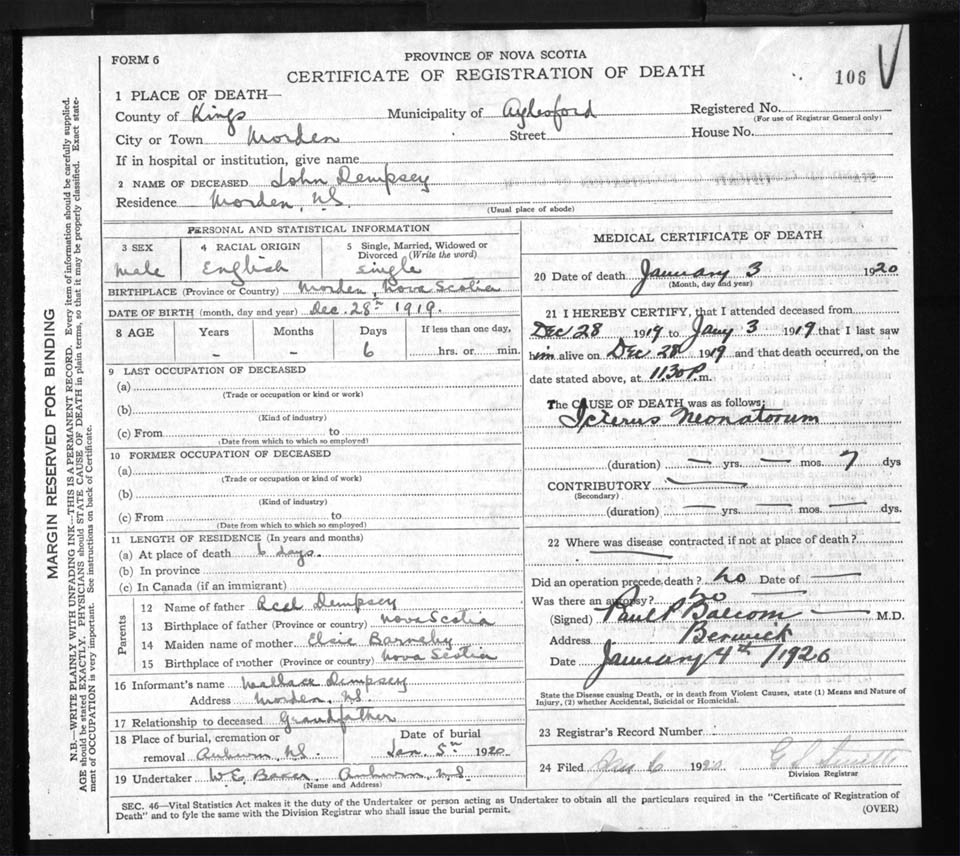 FORM 6
PROVINCE OF NOVA SCOTIA
CERTIFICATE OF REGISTRATION OF DEATH
106
1 PLACE OF DEATH—
County of Kings Municipality of Aylesford Registered No.
(For use of Registrar General only)
City or Town Morden Street House No.
If in hospital or institution, give name
2 NAME OF DECEASED John Dempsey
Residence Morden, N.S.
(Usual place of abode)
PERSONAL AND STATISTICAL INFORMATION
3 SEX 4 RACIAL ORIGIN 5 Single, Married, Widowed or Divorced (Write the word)
Male English Single
BIRTHPLACE (Province or Country) Morden, Nova Scotia
DATE OF BIRTH (month, day and year) Dec. 28th 1919.
8 AGE Years Months Days If less than one day,
- - 6 hrs. or min.
9 LAST OCCUPATION OF DECEASED
(a)
(Trade or occupation or kind or work)
(b)
(Kind of industry)
(c) From to
(Date from which to which so employed)
10 FORMER OCCUPATION OF DECEASED
(a)
(Trade or occupation or kind of work)
(b)
(Kind of industry)
(c) From to
(Date from which to which so employed)
11 LENGTH OF RESIDENCE (In years and months)
(a) At place of death 6 days.
(b) In province
(c) In Canada (if an immigrant)
Parents
12 Name of father Dempsey
13 Birthplace of father (Province or country) Nova Scotia
14 Maiden name of mother Elsie Barneby
15 Birthplace of mother (Province or country) Nova Scotia
16 Informant's name Wallace Dempsey
Address Morden, N.S.
17 Relationship to deceased Grandfather
18 Place of burial, cremation or removal Auburn, N.S. Date of burial Jan. 5th 1920
19 Undertaker W.E. Baker Auburn, N.S.
(Name and Address)
MEDICAL CERTIFICATE OF DEATH
20 Date of death January 3 1920
(Month, day and year)
21 I HEREBY CERTIFY, that I attended deceased from
Dec 28 1919 to Jany 3 1919 that I last saw
him alive on Dec 28 1919 and that death occurred, on the
date stated above, at 11.30 P.m.
The CAUSE OF DEATH was as follows:
Icterus Neonatorum
(duration) — yrs. — mos. 7 dys
CONTRIBUTORY —
(Secondary)
(duration) — yrs. — mos. — dys.
22 Where was disease contracted if not at place of death?
Did an operation precede death? No Date of —
Was there an autopsy? No
(Signed) Paul P Balcom — M.D.
Address Berwick
Date January 4th/1920
State the Disease causing Death, or in death from Violent Causes, state (1) Means and Nature of
Injury, (2) whether Accidental, Suicidal or Homicidal.
23 Registrar's Record Number
24 Filed Jan 6 1920
Division Registrar
SEC. 46—Vital Statistics Act makes it the duty of the Undertaker or person acting as Undertaker to obtain all the particulars required in the "Certificate of Registration of
Death" and to fyle the same with the Division Registrar who shall issue the burial permit.
(OVER)
MARGIN RESERVED FOR BINDING
N.B.—WRITE PLAINLY WITH UNFADING INK—THIS IS A PERMANENT RECORD. Every item of information should be carefully supplied.
AGE should be stated EXACTLY. PHYSICIANS should STATE CAUSE OF DEATH in plain terms, so that it may be properly classified. Exact state-
ment of OCCUPATION is very important. See instructions on back of Certificate.